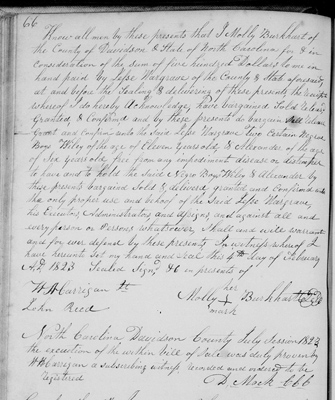 66
Know all men by these presents that I Molly Burkhart of
the County of Davidson & State of North Carolina for & in
consideration of the sum of five hundred Dollars to me in
hand paid by Lepe Hargrave of the County & State aforesaid
at and before the Sealing & delivering of these presents the receipt
whereof I do hereby Acknowledge, have bargained Sold released
Granted, & Confirmed and by these presents do bargain Sell release
Grant and Confirm unto the Said Lepe Hargrave Two Certain Negroe
Boys Wiley of the age of Eleven Years old, & Alexander of the age
of Six Years old, free from any impediment disease or distemper
to have and to hold the Said Negroe Boys Wiley & Alexander by
these presents bargained Sold & delivered granted and Confirmed unto
the only proper use and behoof of the Said Lepe Hargrave,
his Executors, Administrators, and Assigns, and against all and
every person or Persons Whatsoever, Shall and will warrant
and for ever defend by these presents In witness whereof I
have hereunto Set my hand and Seal this 4th day of February
AD, 1823 Sealed Signd &c in presents of
WH Carrigan
her
Molly + Burkhart
John Reed
mark
North Carolina Davidson County July Session 1823
the execution of the within bill of Sale was duly proven by
WH Carrigan a subscribing witness recorded and ordered to be
registered
D Mock CCC